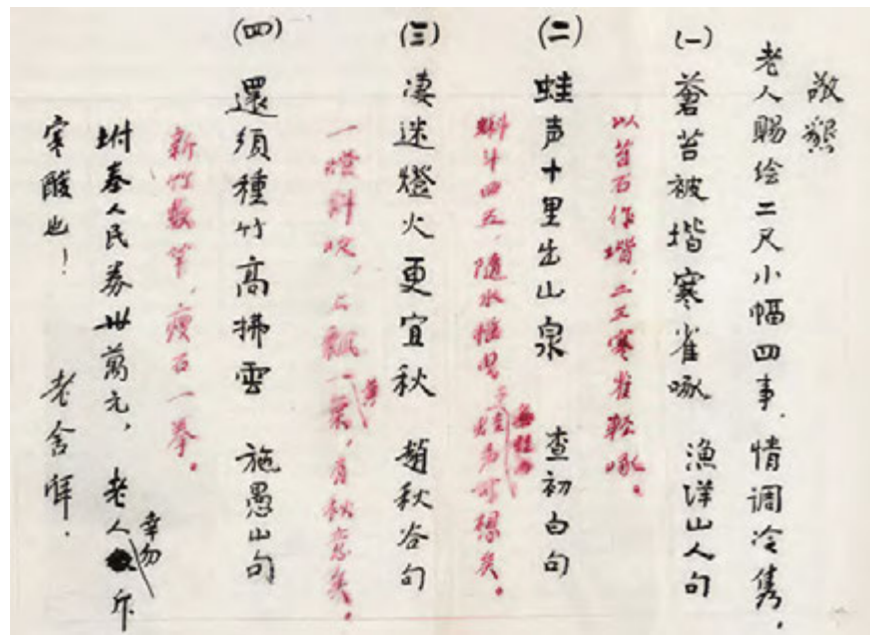 敬懇
老人賜绘二尺小幅四事,情调冷隽。
(一) 蒼苔被堦寒雀啄 漁洋山人句
以苔石作堦,二三寒雀輕啄。
(二) 蛙声十里出山泉 查初白句
蝌斗四五,隨水摇曳;無蛙而蛙声可想矣。
(三) 凄迷燈火更宜秋 趙秋谷句
一燈斜吹,上飄一黄葉,有秋意矣。
(四) 還須種竹高拂雲 施愚山句
新竹数竿,瘦石一拳。
坿奉人民券卅萬元,老人幸勿斥
寒酸也! 老舍拜.